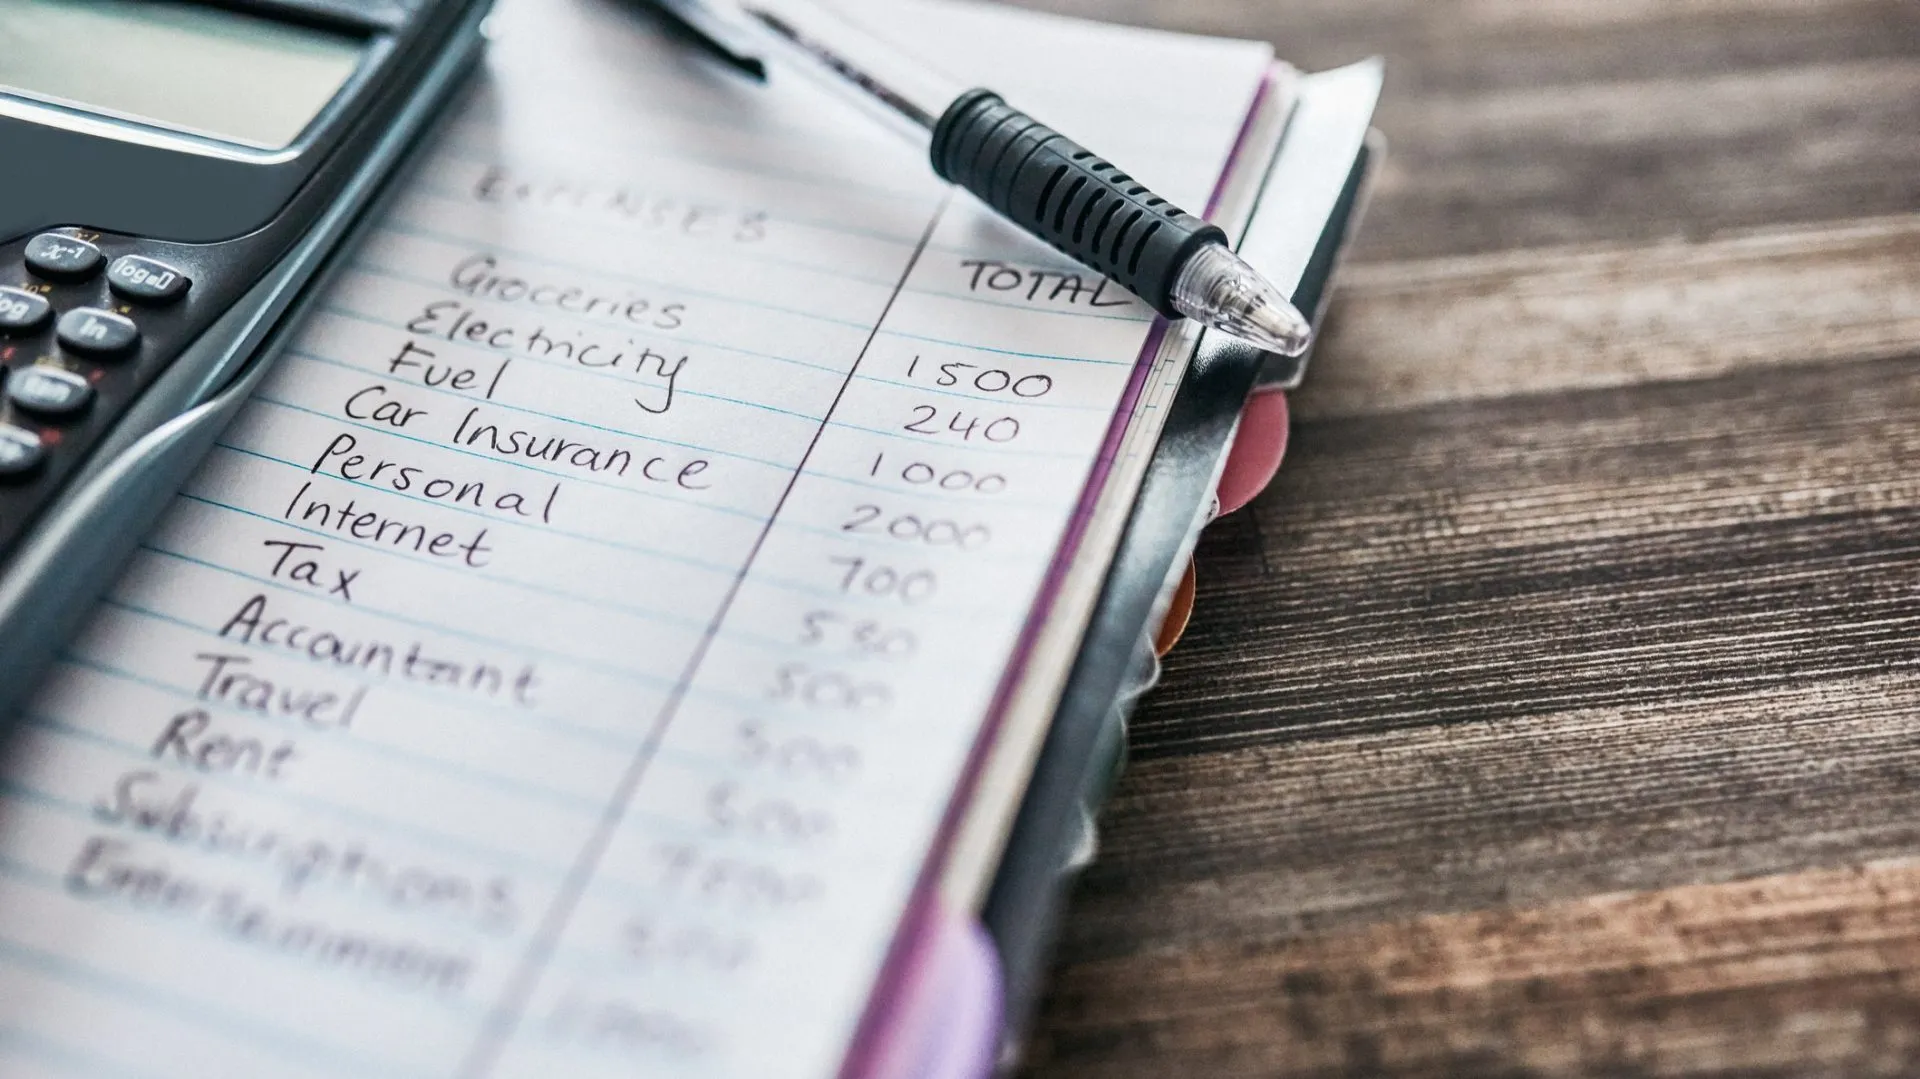 EXPENSES
TOTAL
Groceries 1500
Electricity 240
Fuel 1000
Car Insurance 2000
Personal 700
Internet 530
Tax 500
Accountant 500
Travel 500
Rent
Subscriptions
Entertainment
x-1
log
ln